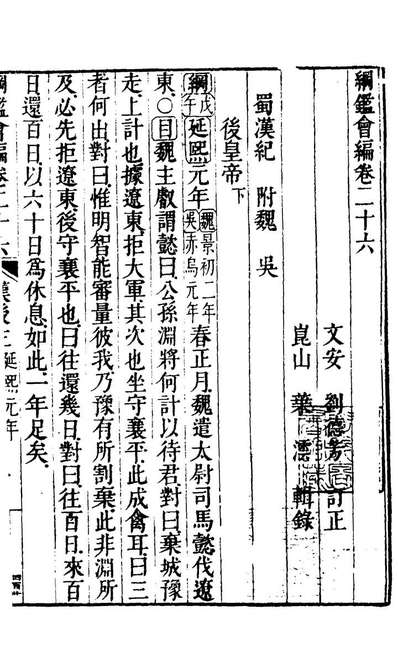 綱鑑會編卷二十六
文安 劉德芳 訂正
崑山 葉澐 輯錄
蜀漢紀 附魏 吳
後皇帝 下
綱戊午延熙元年魏景初二年吳赤烏元年春正月魏遣太尉司馬懿伐遼
東○目魏主叡謂懿曰公孫淵將何計以待君對曰棄城豫
走上計也據遼東拒大軍其次也坐守襄平此成禽耳曰三
者何出對曰惟明智能審量彼我乃豫有所割棄此非淵所
及必先拒遼東後守襄平也曰往還幾日對曰往百日來百
日還百日以六十日爲休息如此一年足矣
綱鑑會編卷二十六 漢後主延熙元年